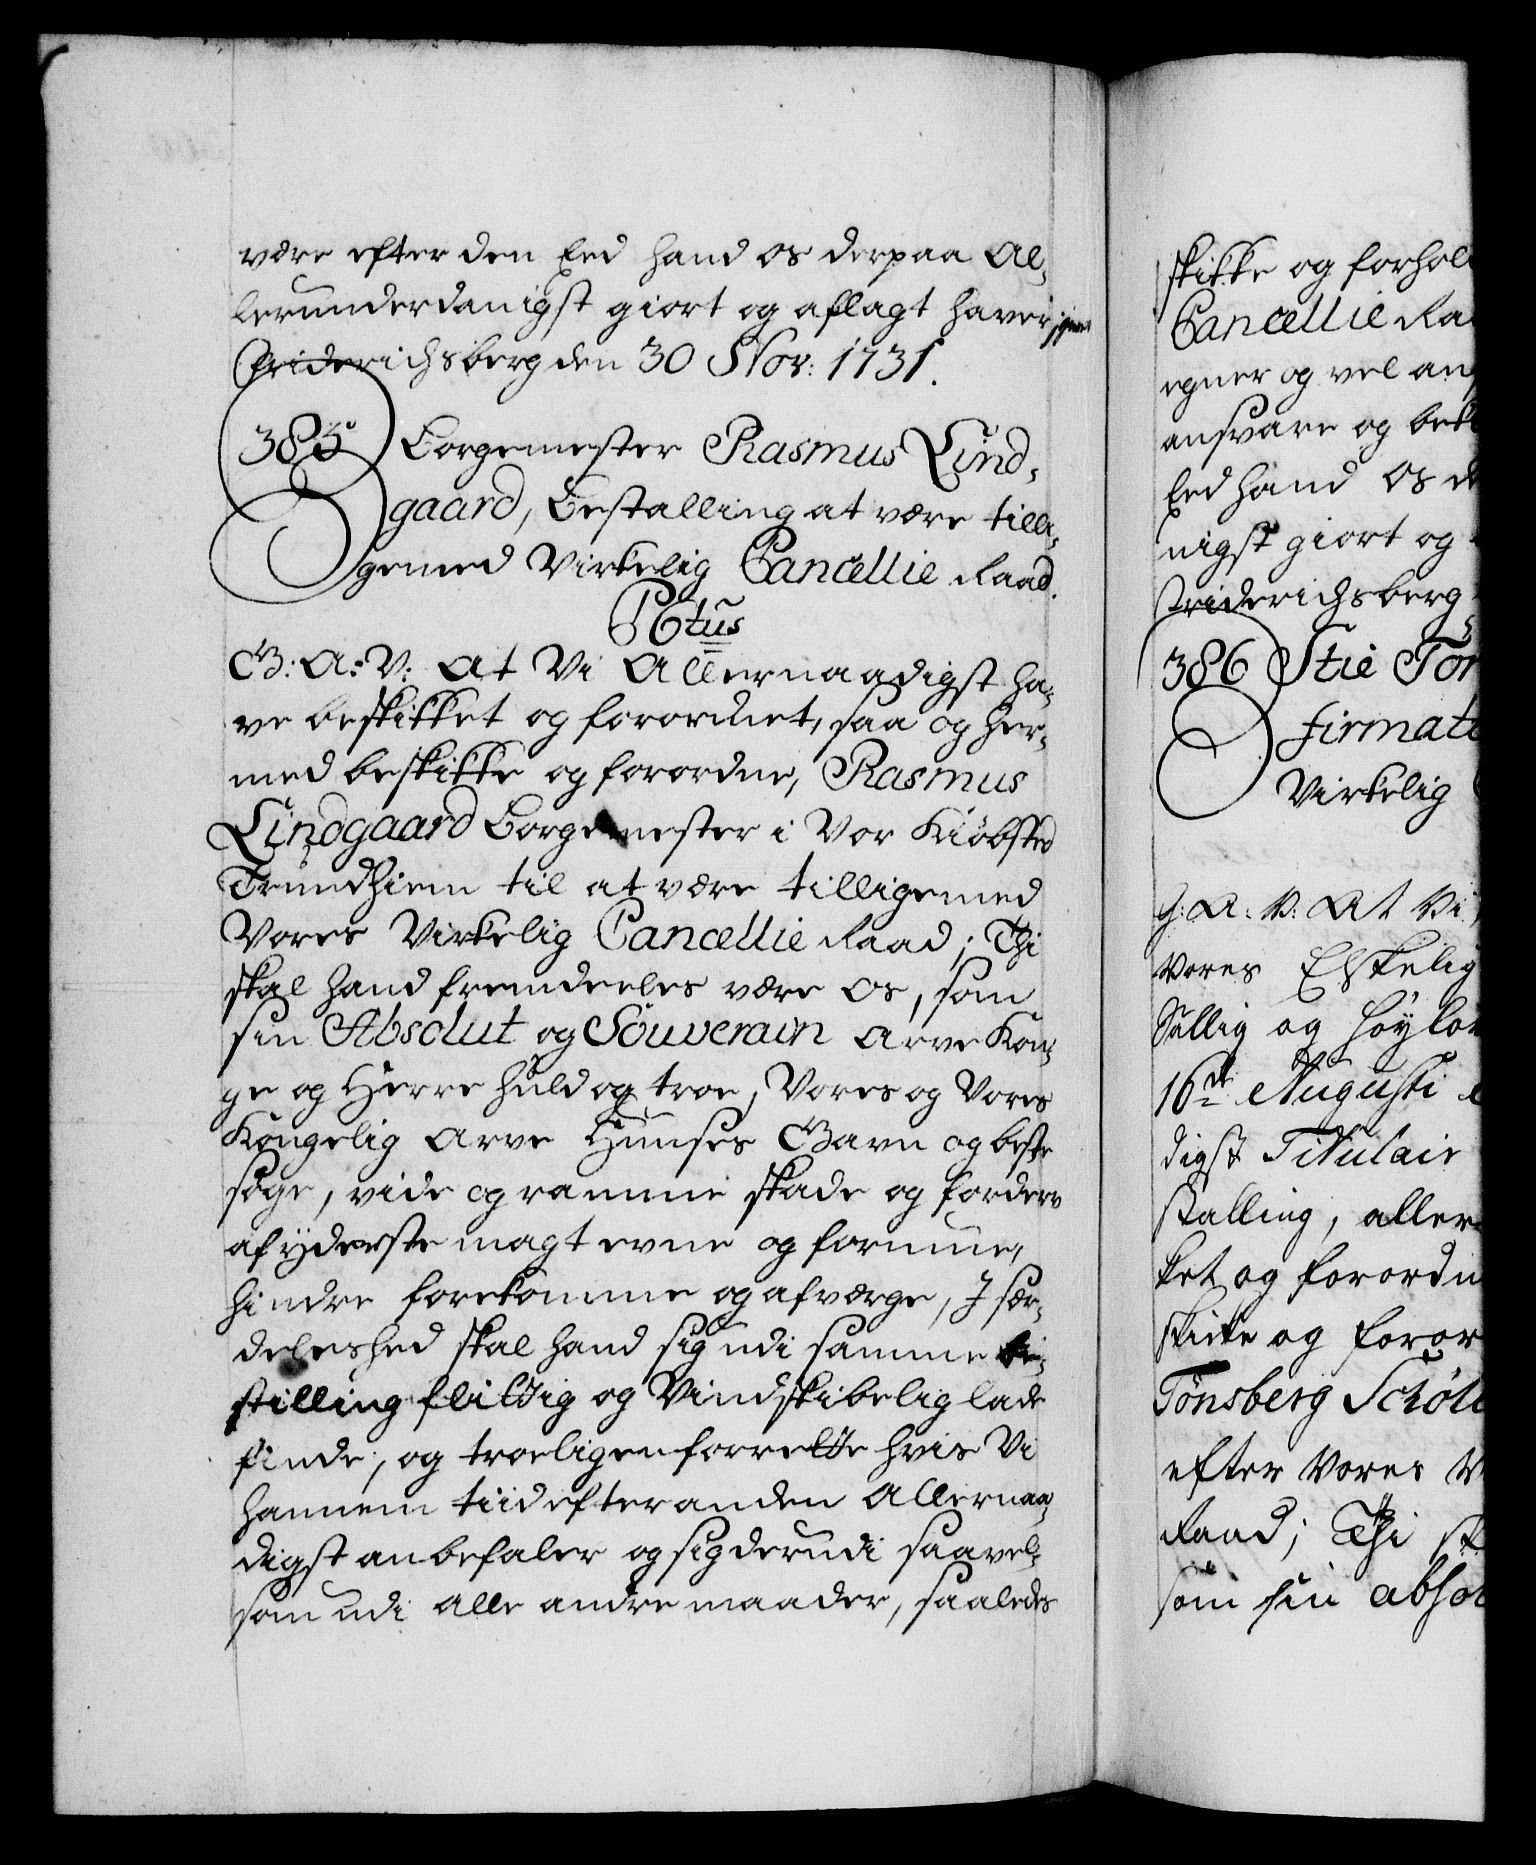 være efter den Eed hand os derpaa Al-
lerunderdanigst giort og aflagt haver,
Friderichsberg den 30 Nov: 1731.
385 Borgemester Rasmus Lind-
gaard, Bestalling at være tilli-
gemed Virkelig Cancellie Raad.
C6tus
G: A: V: At Vi Allernaadigst ha-
ve beskikket og forordnet, saa og her-
med beskikke og forordne, Rasmus
Lindgaard Borgemester i Vor Kiøbsted
Trundhiem til at være tilligemed
Vores Virkelig Cancellie Raad; Thi
skal hand fremdeeles være Os, som
sin Absolut og Souverain Arve Kon-
ge og Herre huld og troe, Vores og Vores
Kongelig Arve Huuses Gavn og beste
søge, vide og ramme skade og forderv
af yderste magt evne og formue,
hindre forekomme og afværge, J sær-
deleshed skal hand sig udi samme be-
stilling flittig og Vindskibelig lade
finde, og troeligen forrette hvis Vi
hannem tiid efter anden Allernaa-
digst anbefaler og sig derudi saavel-
som udi alle andre maader, saaledes
skikke og forhol
Cancellie Ra
egner og vel an
ansvare og bek
Eed hand Os d
nigst giort og
Friderichsberg
386 Stie Tøn
firmati
Virkelig
G: A: V: At Vi
Vores Elskelig
Sallig og høylov
16de Augusti
digst Titulair
stalling, aller
ket og forordn
skicke og foror
Tønsberg Schøll
efter Vores V
Raad; Thi sk
som sin absol